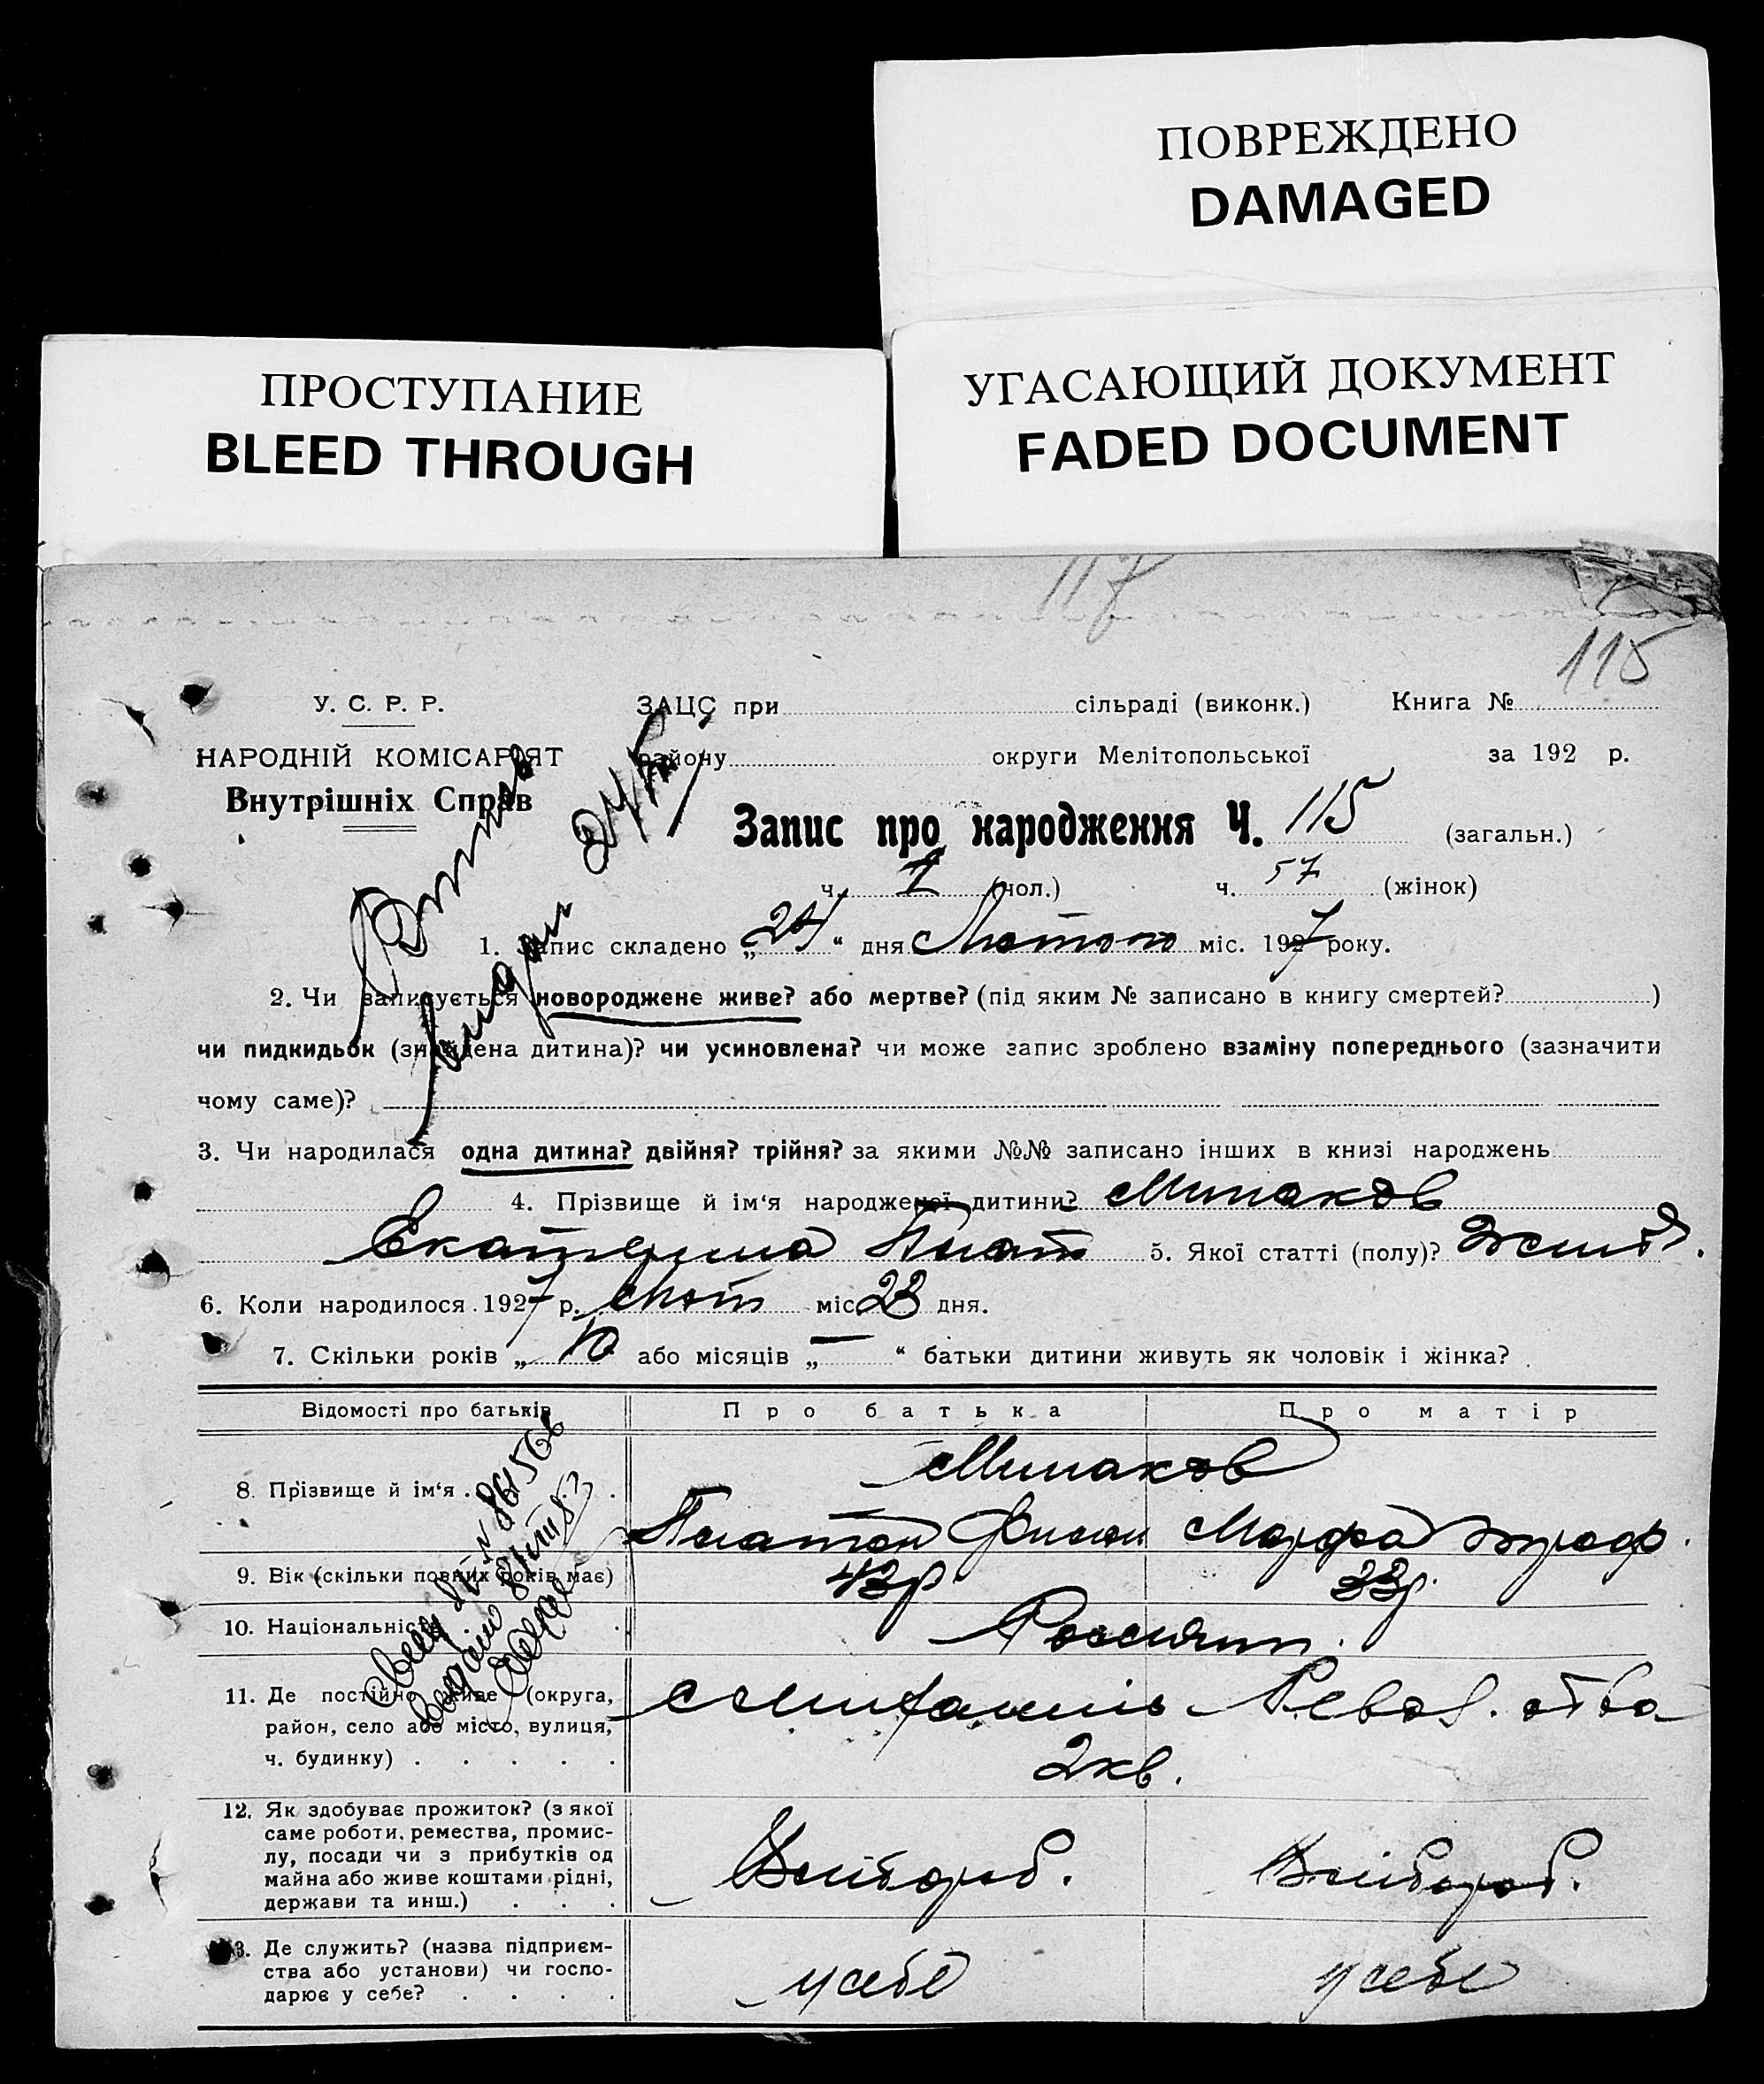 ПОВРЕЖДЕНО
DAMAGED
ПРОСТУПАНИЕ
BLEED THROUGH
УГАСАЮЩИЙ ДОКУМЕНТ
FADED DOCUMENT
117
115
У. С. Р. Р.
НАРОДНІЙ КОМІСАРІЯТ
Внутрішніх Справ
ЗАЦС при сільраді (виконк.) Книга №
району округи Мелітопольської за 192 р.
Запис про народження Ч. 115 (загальн.)
ч. (чол.) ч. 57 (жінок)
1. Запис складено „24“ дня Лютого міс. 1927 року.
2. Чи записується новороджене живе? або мертве? (під яким № записано в книгу смертей? )
чи пидкидьок (знайдена дитина)? чи усиновлена? чи може запис зроблено взаміну попереднього (зазначити
чому саме)?
3. Чи народилася одна дитина? двійня? трійня? за якими №№ записано інших в книзі народжень
4. Прізвище й ім‘я народженої дитини? Минаков
Екатерина Плат 5. Якої статті (полу)?
6. Коли народилося 1927 р. Лют міс 23 дня.
7. Скільки років „ 10 або місяців „ — “ батьки дитини живуть як чоловік і жінка?
Відомості про батьків Про батька Про матір
8. Прізвище й ім‘я . Минаков
Платон Марфа
9. Вік (скільки повних років має) 43р. 33р.
10. Національність
11. Де постійно живе (округа,
район, село або місто, вулиця,
ч. будинку) . . . . .
2кв.
12. Як здобуває прожиток? (з якої
саме роботи, ремества, промис-
лу, посади чи з прибутків од
майна або живе коштами рідні,
держави та инш.) . . .
Хлібороб. Хлібороб.
13. Де служить? (назва підприєм-
ства або установи) чи госпо-
дарює у себе? . . . .
у себе у себе